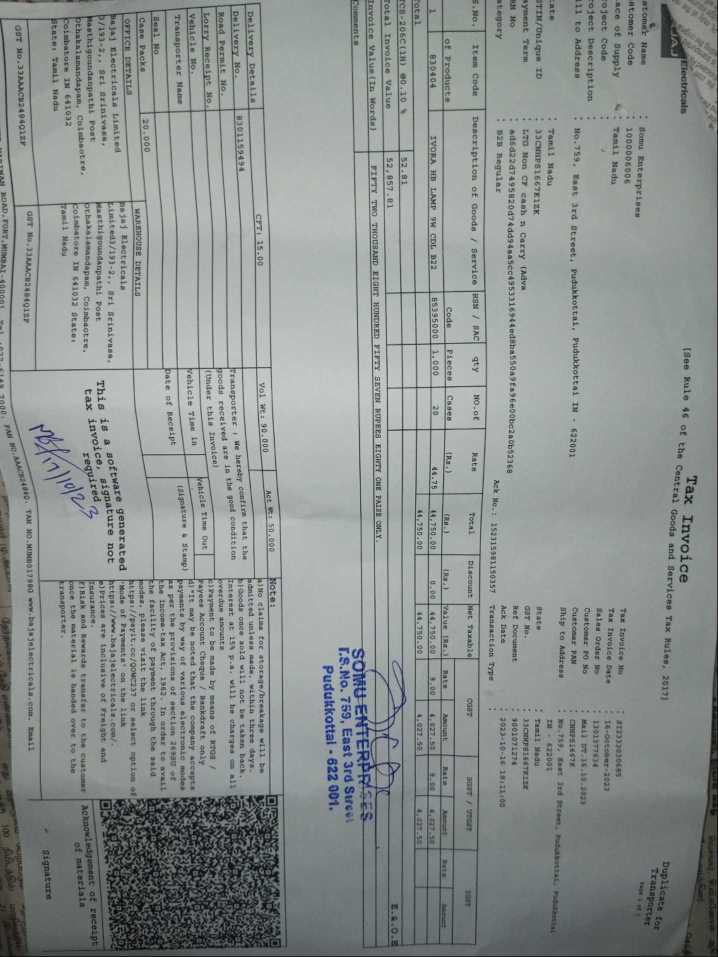 Electricals
Tax Invoice
(See Rule 46 of the Central Goods and Services Tax Rules, 2017)
Duplicate for
Transporter
Customer Name : Somu Enterprises
Customer Code : 1000006006
Place of Supply : Tamil Nadu
Project Code :
Project Description :
Bill to Address : No.759, East 3rd Street, Pudukkottai, Pudukkottai IN - 622001
State : Tamil Nadu
GSTIN/Unique ID : 33CMHPS1667K1ZK
Payment Term : LTG Non CF cash n Carry (Adva
Category : B2B Regular
Ack No.: 152315981150357
Tax Invoice No
Tax Invoice Date : 16-October-2023
Sales Order No : 1301377634
Customer PO No : Mail DT.16.10.2023
Customer PAN : CMHPS1667K
Ship to Address : No.759, East 3rd Street, Pudukkottai, Pudukkottai
IN - 622001
State : Tamil Nadu
GST No. : 33CMHPS1667K1ZK
Ref Document : 9801071274
Ack Date : 2023-10-16 18:21:00
Transaction Type
S.No. Item Code of Products Description of Goods / Service HSN / SAC Code qty Pieces NO.of Cases Rate (Rs.) Total (Rs.) Discount (Rs.) Net Taxable Value (Rs.) CGST Rate Amount SGST / UTGST Rate Amount IGST Rate Amount
1 830404 IVORA HB LAMP 9W CDL B22 85395000 1,000 20 44.75 44,750.00 0.00 44,750.00 9.00 4,027.50 9.00 4,027.50
Total 44,750.00 44,750.00 4,027.50 4,027.50
TCS-206C(1H) @0.10 % 52.81
Total Invoice Value 52,857.81
Invoice Value(In Words) FIFTY TWO THOUSAND EIGHT HUNDRED FIFTY SEVEN RUPEES EIGHTY ONE PAISE ONLY.
E.& O.E
Comments
SOMU ENTERPRISES
T.S.No. 759, East 3rd Street
Pudukkottai - 622 001.
Delivery Details CFT: 15.00 Vol Wt: 90.000 Act Wt: 50.000
Delivery No. 8301159494
Road Permit No.
Lorry Receipt No.
Vehicle No.
Transporter Name
Seal No
Case Packs 20.000
Transporter : We hereby confirm that the
goods received are in the good condition
(Under this Invoice)
Vehicle Time in Vehicle Time Out
Date of Receipt (Signature & Stamp)
OFFICE DETAILS
Bajaj Electricals Limited
3/193-2,, Sri Srinivasa,
Masthigoundanpathi Post
Othakalamandapam, Coimbaotre,
Coimbatore IN 641032
State: Tamil Nadu
GST No.33AAACB2484Q1ZP
WAREHOUSE DETAILS
Bajaj Electricals
Limited3/193-2,, Sri Srinivasa,
Masthigoundanpathi Post
Othakalamandapam, Coimbaotre,
Coimbatore IN 641032 State:
Tamil Nadu
GST No.33AAACB2484Q1ZP
This is a software generated
tax invoice, signature not
required
17/10/23
Note:
a)No claims for storage/breakage will be
admitted unless made, within three days.
b)Goods once sold will not be taken back.
Interest at 15% p.a. will be charges on all
overdue amounts
c)Payment to be made by means of RTGS /
Payees Account Cheque / Bankdraft only
d)"It may be noted that the company accepts
payments by way of various electronic modes
as per the provisions of section 269SU of
the Income-tax Act, 1962. In order to avail
the facility of payment through the said
modes, please visit the link
"Mode of Payments" on the link
e)Prices are inclusive of freight and
Insurance.
f)Risk and Rewards transfer to the customer
once the material is handed over to the
transporter.
Acknowledgement of receipt
of materials
Signature
ROAD,FORT,MUMBAI-400001. www.bajajelectricals.com, Email